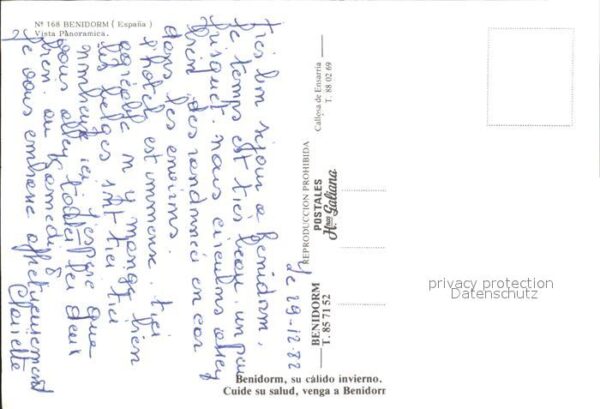 Nº 168 BENIDORM ( España )
Vista Panoramica.
très bon séjour a Benidorm,
le temps est très beau. un peu
frisquet. nous circulons assez
bien, des randonnée en car
dans les environs.
l'hotel est immense. très
agréable on y mange bien
les belges sont très très
nombreux ici, j'espère que
vous allez toutes les deux
bien. au samedi 8
je vous embrasse affectueusement
le 29-12-82
BENIDORM
T. 85 71 52
REPRODUCCION PROHIBIDA
POSTALES
Hnos Galiana
Callosa de Ensarria
T. 88 02 69
Benidorm, su cálido invierno.
Cuide su salud, venga a Benidorm
privacy protection
Datenschutz